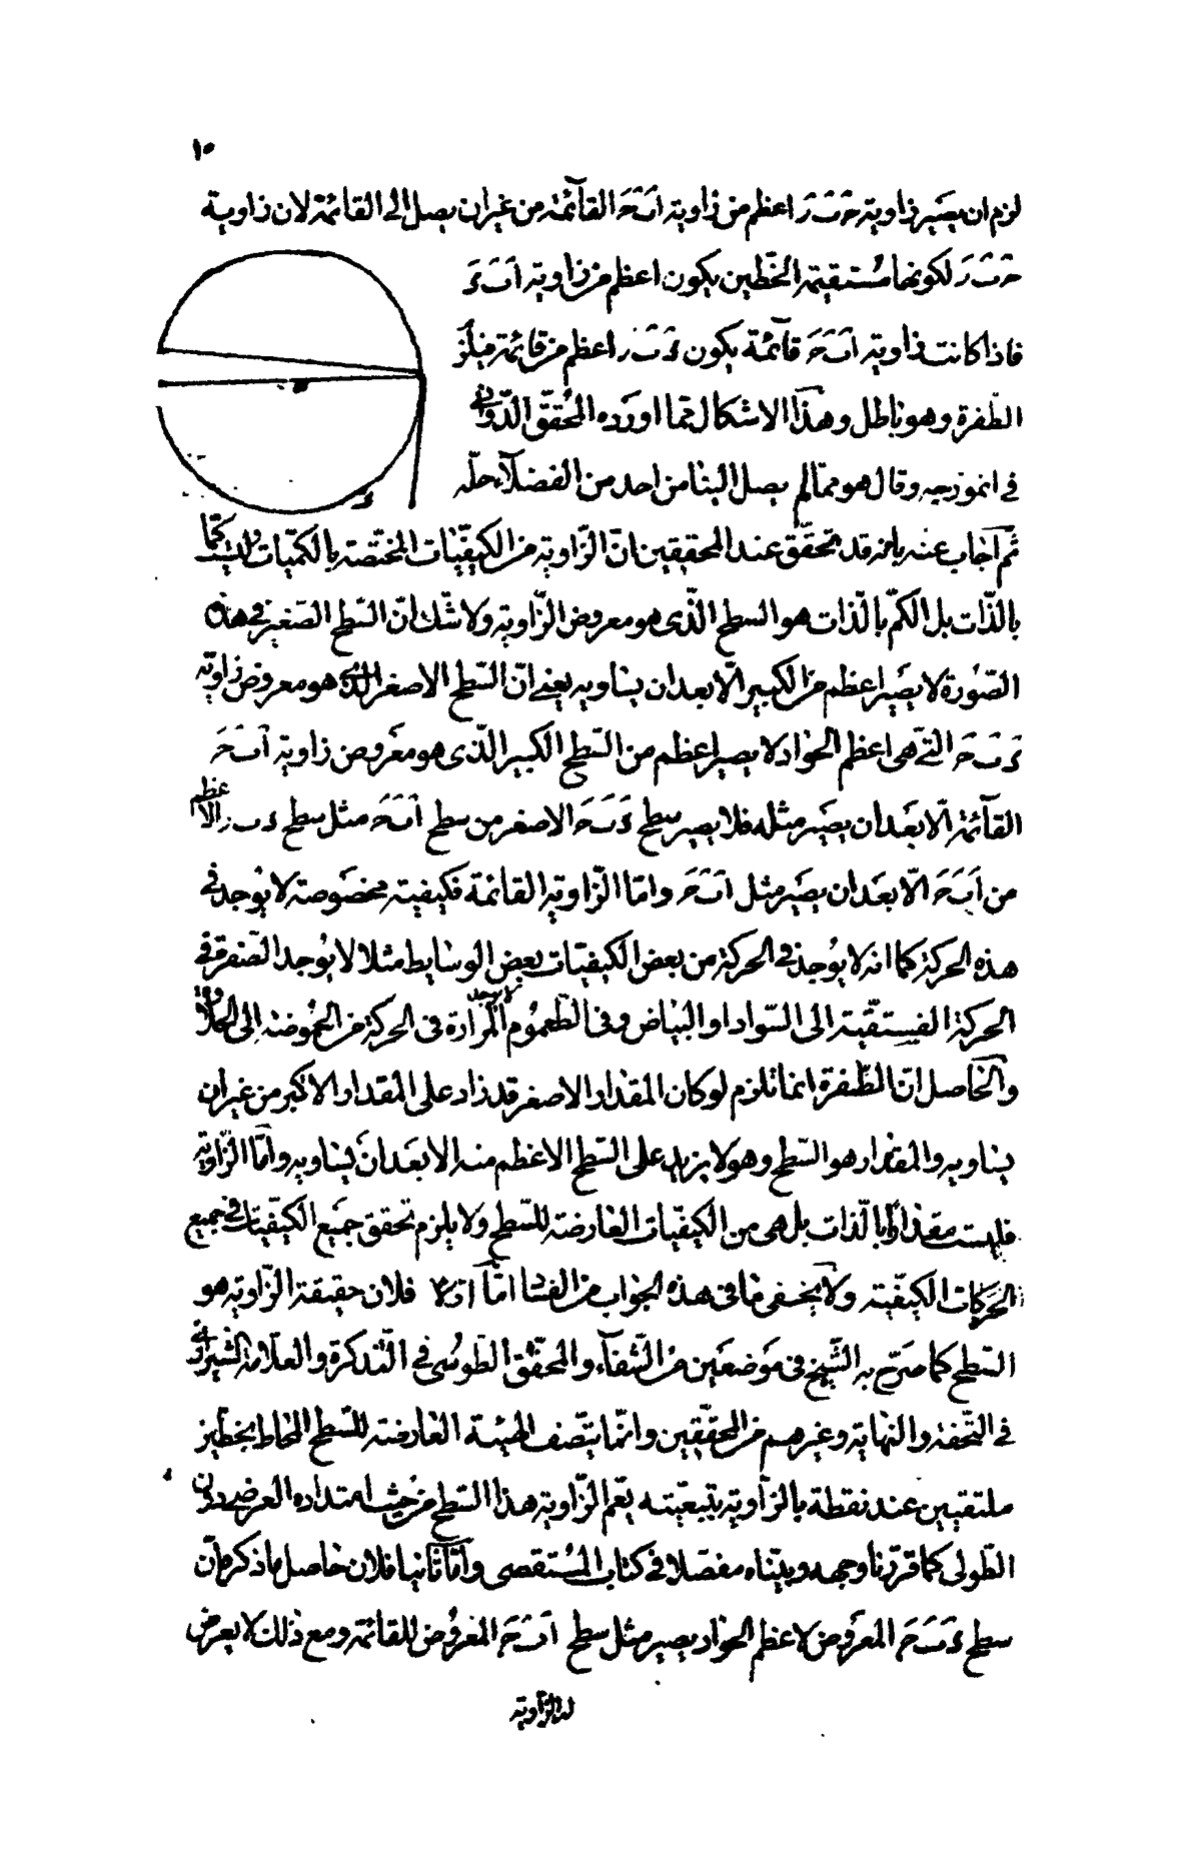 ١٥
لزم ان يصير زاوية حَ بَ رَ اعظم من زاوية اَ بَ حَ القآئمة من غير ان يصل الى القائمة لان زاوية
حَ بَ رَ لكونها مستقيمة الخطين يكون اعظم من زاوية اَ بَ ءَ
فاذا كانت زاوية اَ بَ حَ قآئمة يكون ءَ بَ رَ اعظم من قائمة فيلزم
الطّفرة وهو باطل وهذا الاشكال ممّا اورده المحقق الدّوانى
فى انموذجه وقال هو ممّا لم يصل الينا من احد من الفضلآء حلّه
ثم آجاب عنه بانه قد تحقّق عند المحققين انّ الزّاوية من الكيفيّات المختصة بالكميّات وليست كمّا
بالذّات بل الكمّ بالذّات هو السطح الّذى هو معروض الزّاوية ولا شكّ انّ السّطح الصّغير فى هذه
الصّورة لا يصير اعظم من الكبير الّا بعد ان يساويه يعنى انّ السّطح الاصغر الذى هو معروض زاوية
ءَ بَ حَ التى هى اعظم الحواد لا يصير اعظم من السّطح الكبير الّذى هو معروض زاوية اَ بَ حَ
القآئمة الّا بعد ان يصير مثله فلا يصير سطح ءَ بَ حَ الاصغر من سطح اَ بَ حَ مثل سطح ء ب ر الاعظم
من اَ بَ حَ الّا بعد ان يصير مثل اَ بَ حَ وامّا الزّاوية القائمة فكيفية مخصوصة لا يوجد فى
هذه الحركة كما انه لا يوجد فى الحركة من بعض الكيفيّات بعض الوسايط مثلا لا يوجد الصّفرة فى
الحركة الفستقيّة الى السّواد او البياض وفى الطّعوم لا يوجد المرارة فى الحركة من الحموضة الى الحلاوة
والحاصل انّ الطّفرة انما تلزم لو كان المقدار الاصغر قد زاد على المقدار الاكبر من غير ان
يساويه والمقدار هو السّطح وهو لا يزيد على السّطح الاعظم منه الا بعد ان يساويه وامّا الزّاوية
فليست مقدارا بالذّات بل هى من الكيفيّات العارضة للسّطح ولا يلزم تحقق جميع الكيفيّات فى جميع
الحركات الكيفيّة ولا يخفى ما فى هذه الجواب من الفساد امّا اوّلا فلان حقيقة الزّاوية هو
السّطح كما صرّح به الشّيخ فى موضعين من الشّفآء والمحقّق الطوسى فى التّذكرة والعلّامة الشيرازى
فى التّحفة والنهاية وغيرهم من المحقّقين وانّما يتّصف الهيئة العارضة للسّطح المحاط بخطين
ملتقيين عند نقطة بالزّاوية بتبعيّته يعم الزّاوية هذا السّطح من حيث امتداده العرضى دون
الطّولى كما قرّرنا وجهه وبيّناه مفصّلا فى كتاب المستقصى وامّا ثانيا فلان حاصل ما ذكره انّ
سطح ءَ بَ حَ المعروض لاعظم الحواد يصير مثل سطح اَ بَ حَ المعروض للقائمة ومع ذلك لا يعرض
له الزّاوية